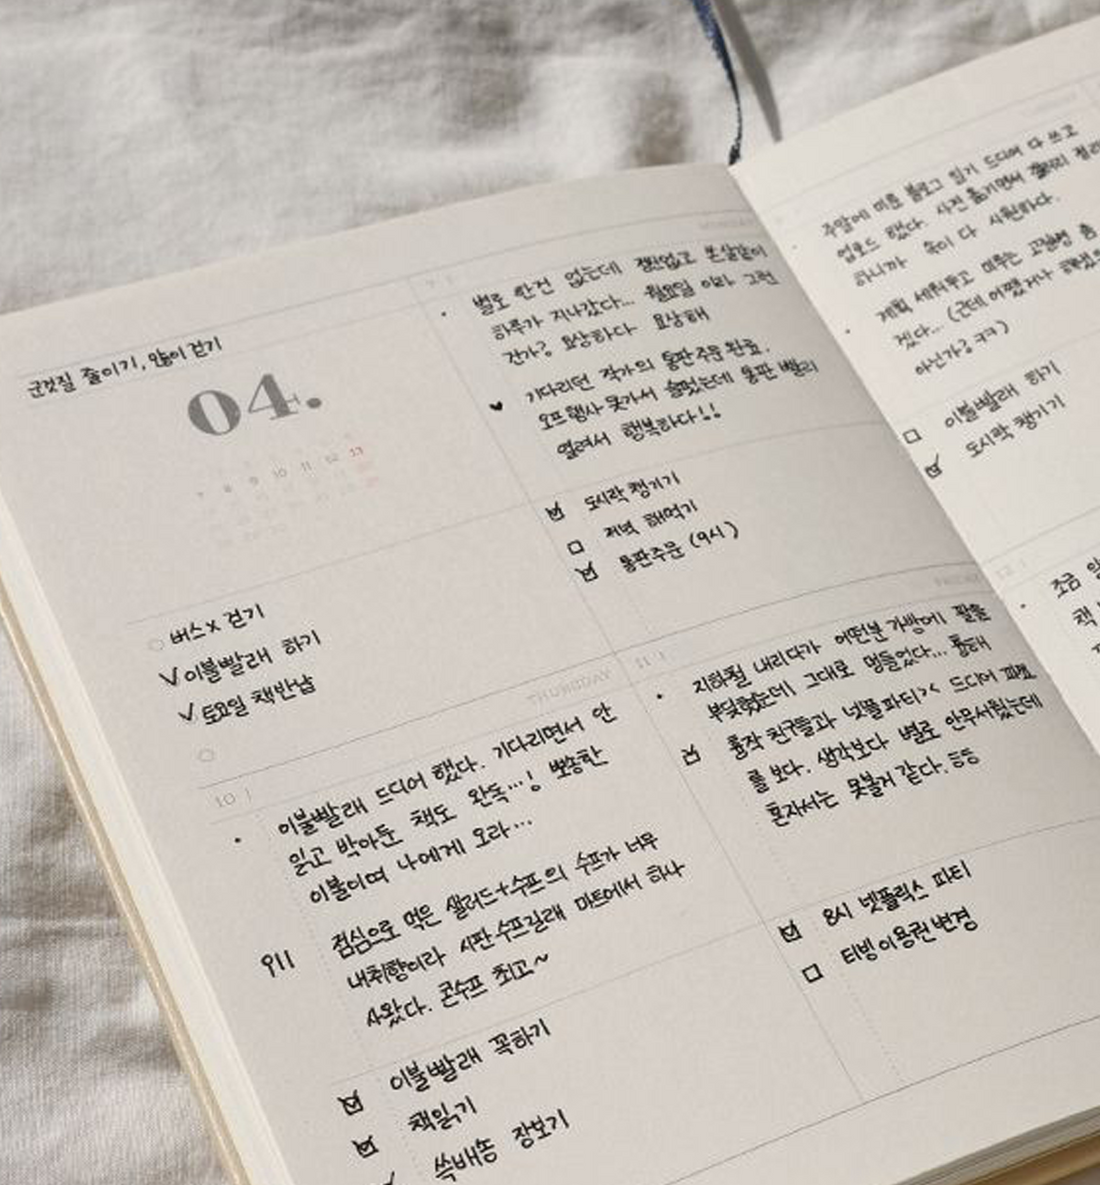 군것질 줄이기, 많이 걷기
04.
7 8 9 10 11 12 13
버스x 걷기
이불빨래 하기
토요일 책반납
별로 한건 없는데 정신없고 쏜살같이
하루가 지나갔다... 월요일 이라 그런
건가? 요상하다 요상해
기다리던 작가의 통판주문완료.
오프행사 못가서 슬펐는데 통판 빨리
열려서 행복하다!!
도시락 챙기기
저녁 해먹기
통판주문 (9시)
THURSDAY
10
이불빨래 드디어 했다. 기다리면서 안
읽고 박아둔 책도 완독...! 뽀송한
이불이여 나에게 오라...
점심으로 먹은 샐러드+수프의 수프가 너무
내취향이라 시판수프길래 마트에서 하나
사왔다. 콘수프 최고~
이불빨래 꼭하기
책읽기
쓱배송 장보기
11
지하철 내리다가 어떤분가방에 팔을
부딪혔는데 그대로 멍들었다... 통해
친구들과 넷플파티>< 드디어
를 보다. 생각보다 별로 안무서웠는데
혼자서는 못볼거 같다.
8시 넷플릭스 파티
티빙이용권변경
주말에 미룬 블로그 일기 드디어 다 쓰고
업로드 했다. 사진 옮기면서 갤러리
하니까 속이 다 시원하다.
계획 세워두고 미루는 고질병 좀
겠다... (근데 어쨌거나
아닌가? ㅋㅋ)
이불빨래 하기
도시락 챙기기
12
조금
책